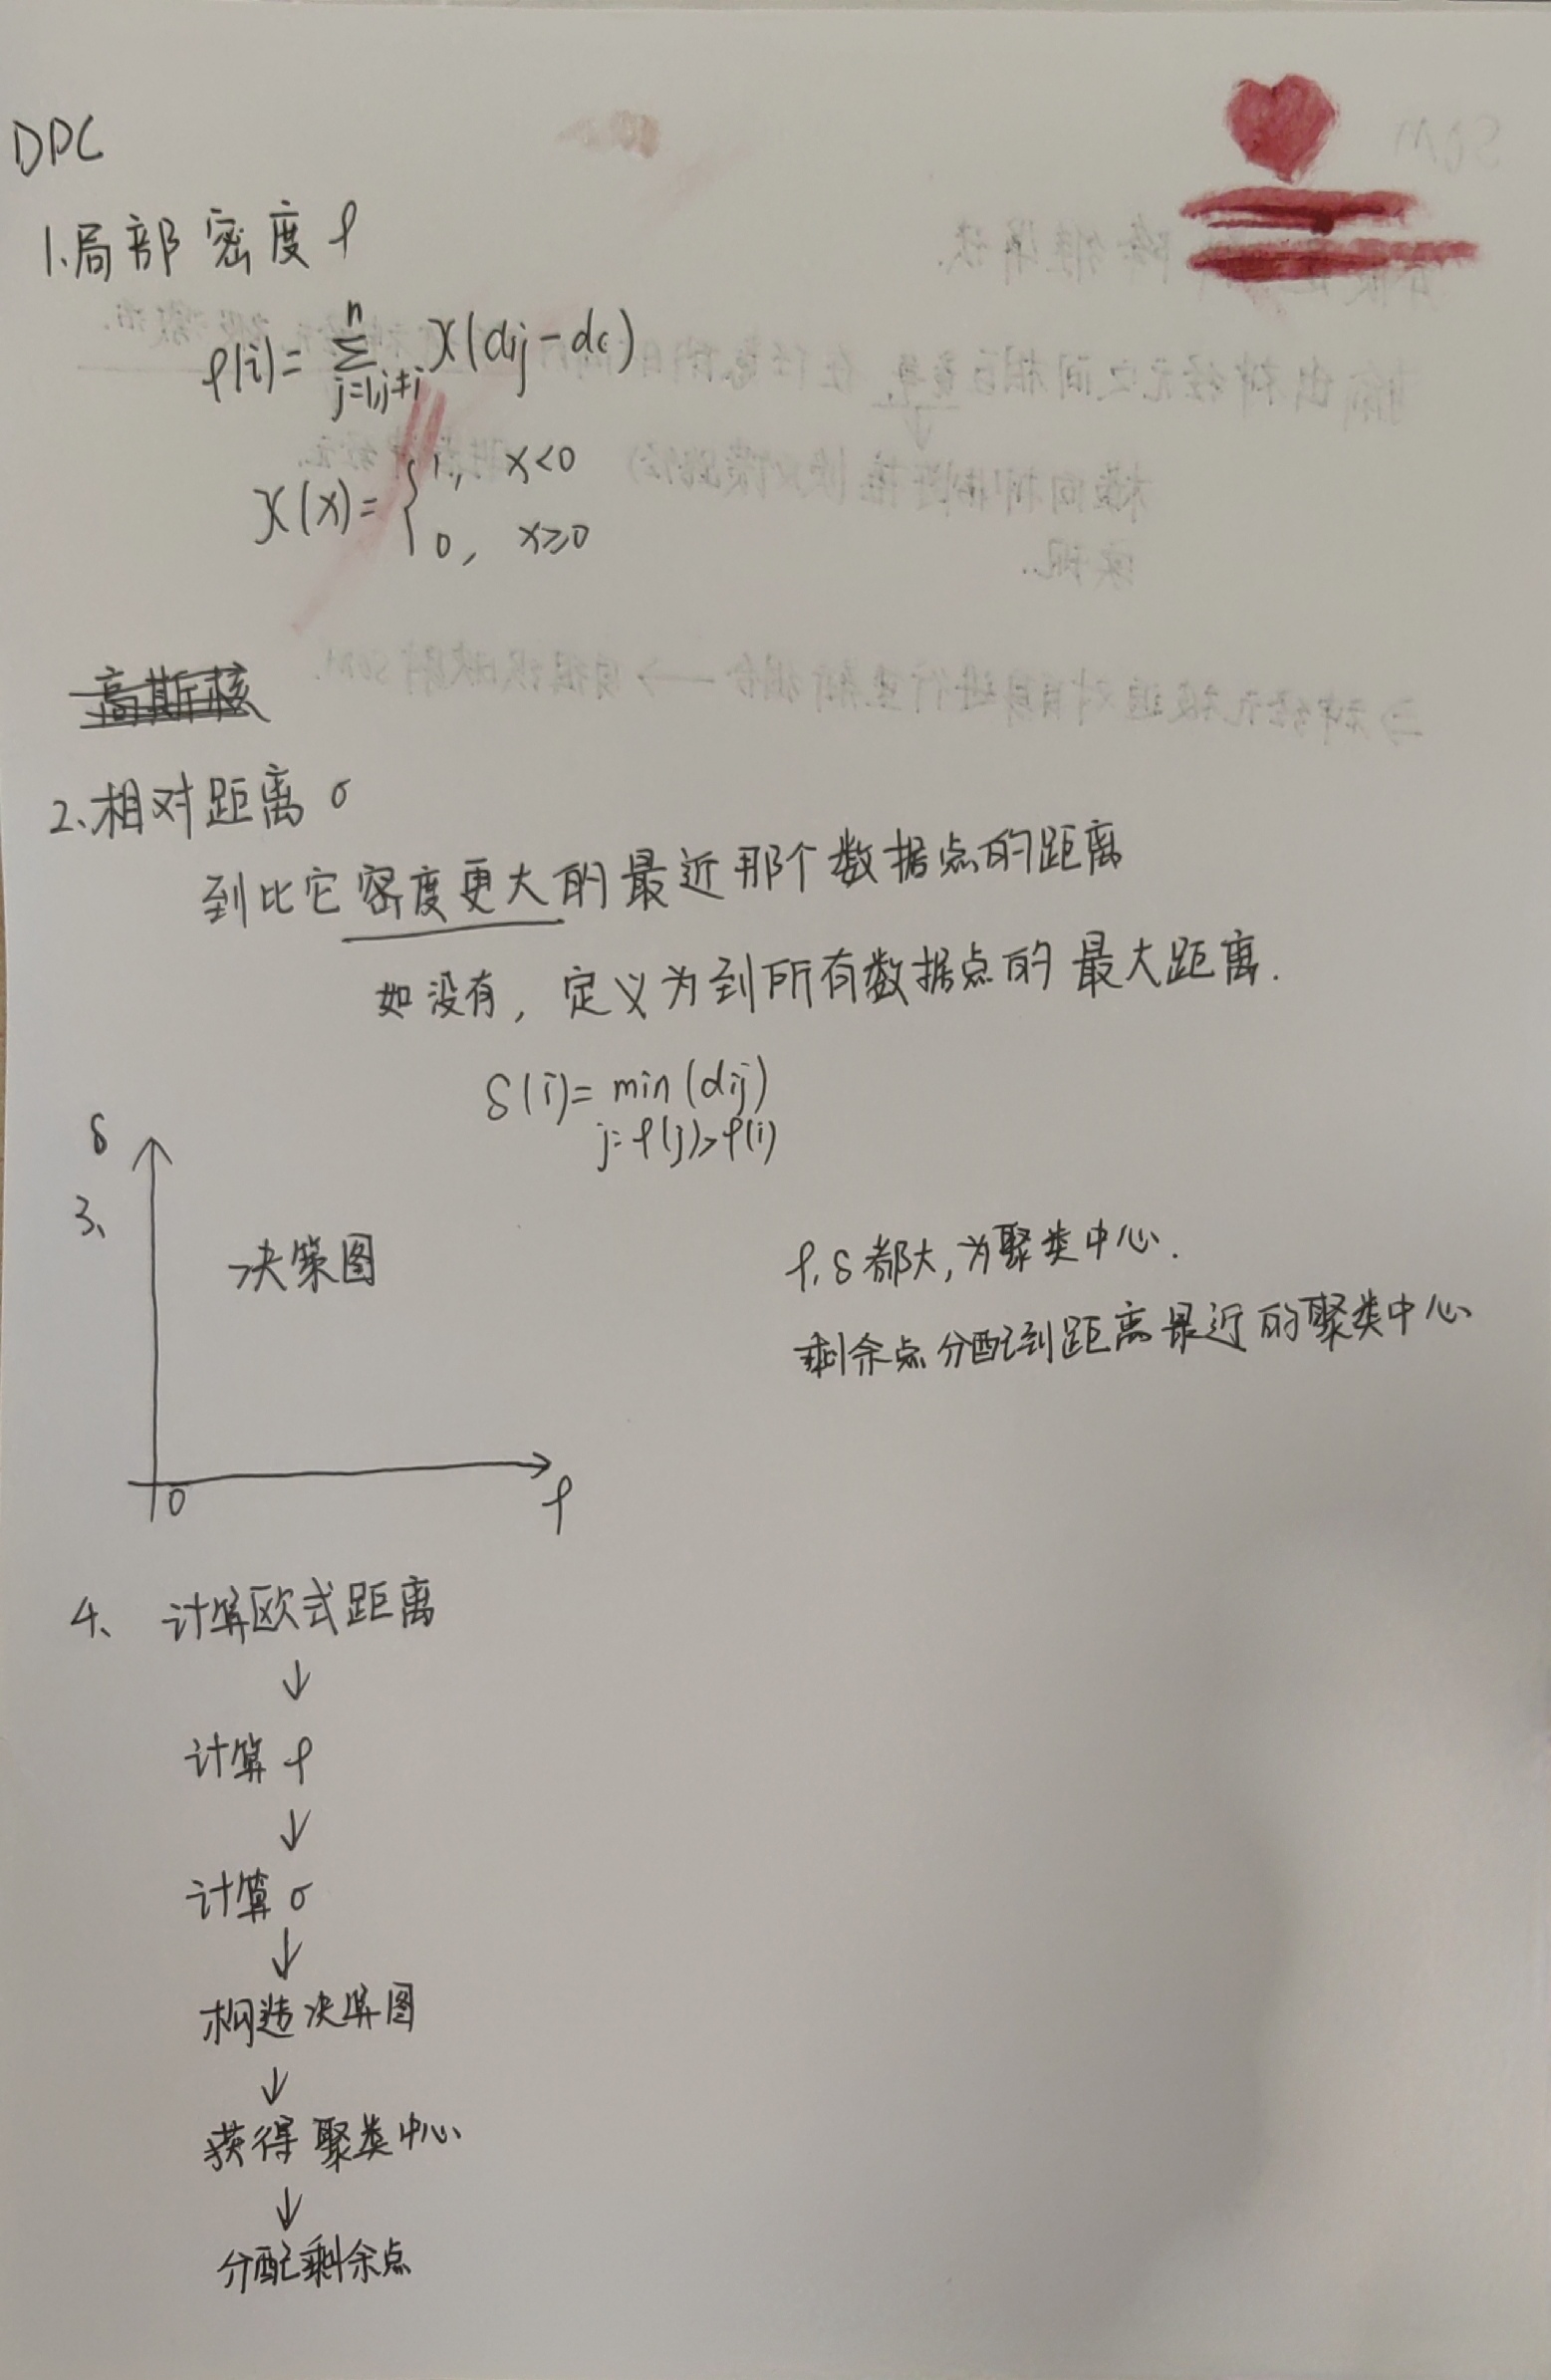 DPC
1.局部密度 ρ
ρ(i)= Σ_{j=1,j≠i}^{n} χ(dij-dc)
χ(x)= { 1, x<0
0, x≥0
高斯核
2、相对距离 σ
到比它密度更大的最近那个数据点的距离
如没有, 定义为到所有数据点的最大距离.
δ(i)= min (dij)
j: ρ(j)>ρ(i)
δ
3、
决策图
ρ, δ都大, 为聚类中心.
剩余点分配到距离最近的聚类中心
0
ρ
4、 计算欧式距离
↓
计算 ρ
↓
计算 σ
↓
构造决策图
↓
获得聚类中心
↓
分配剩余点